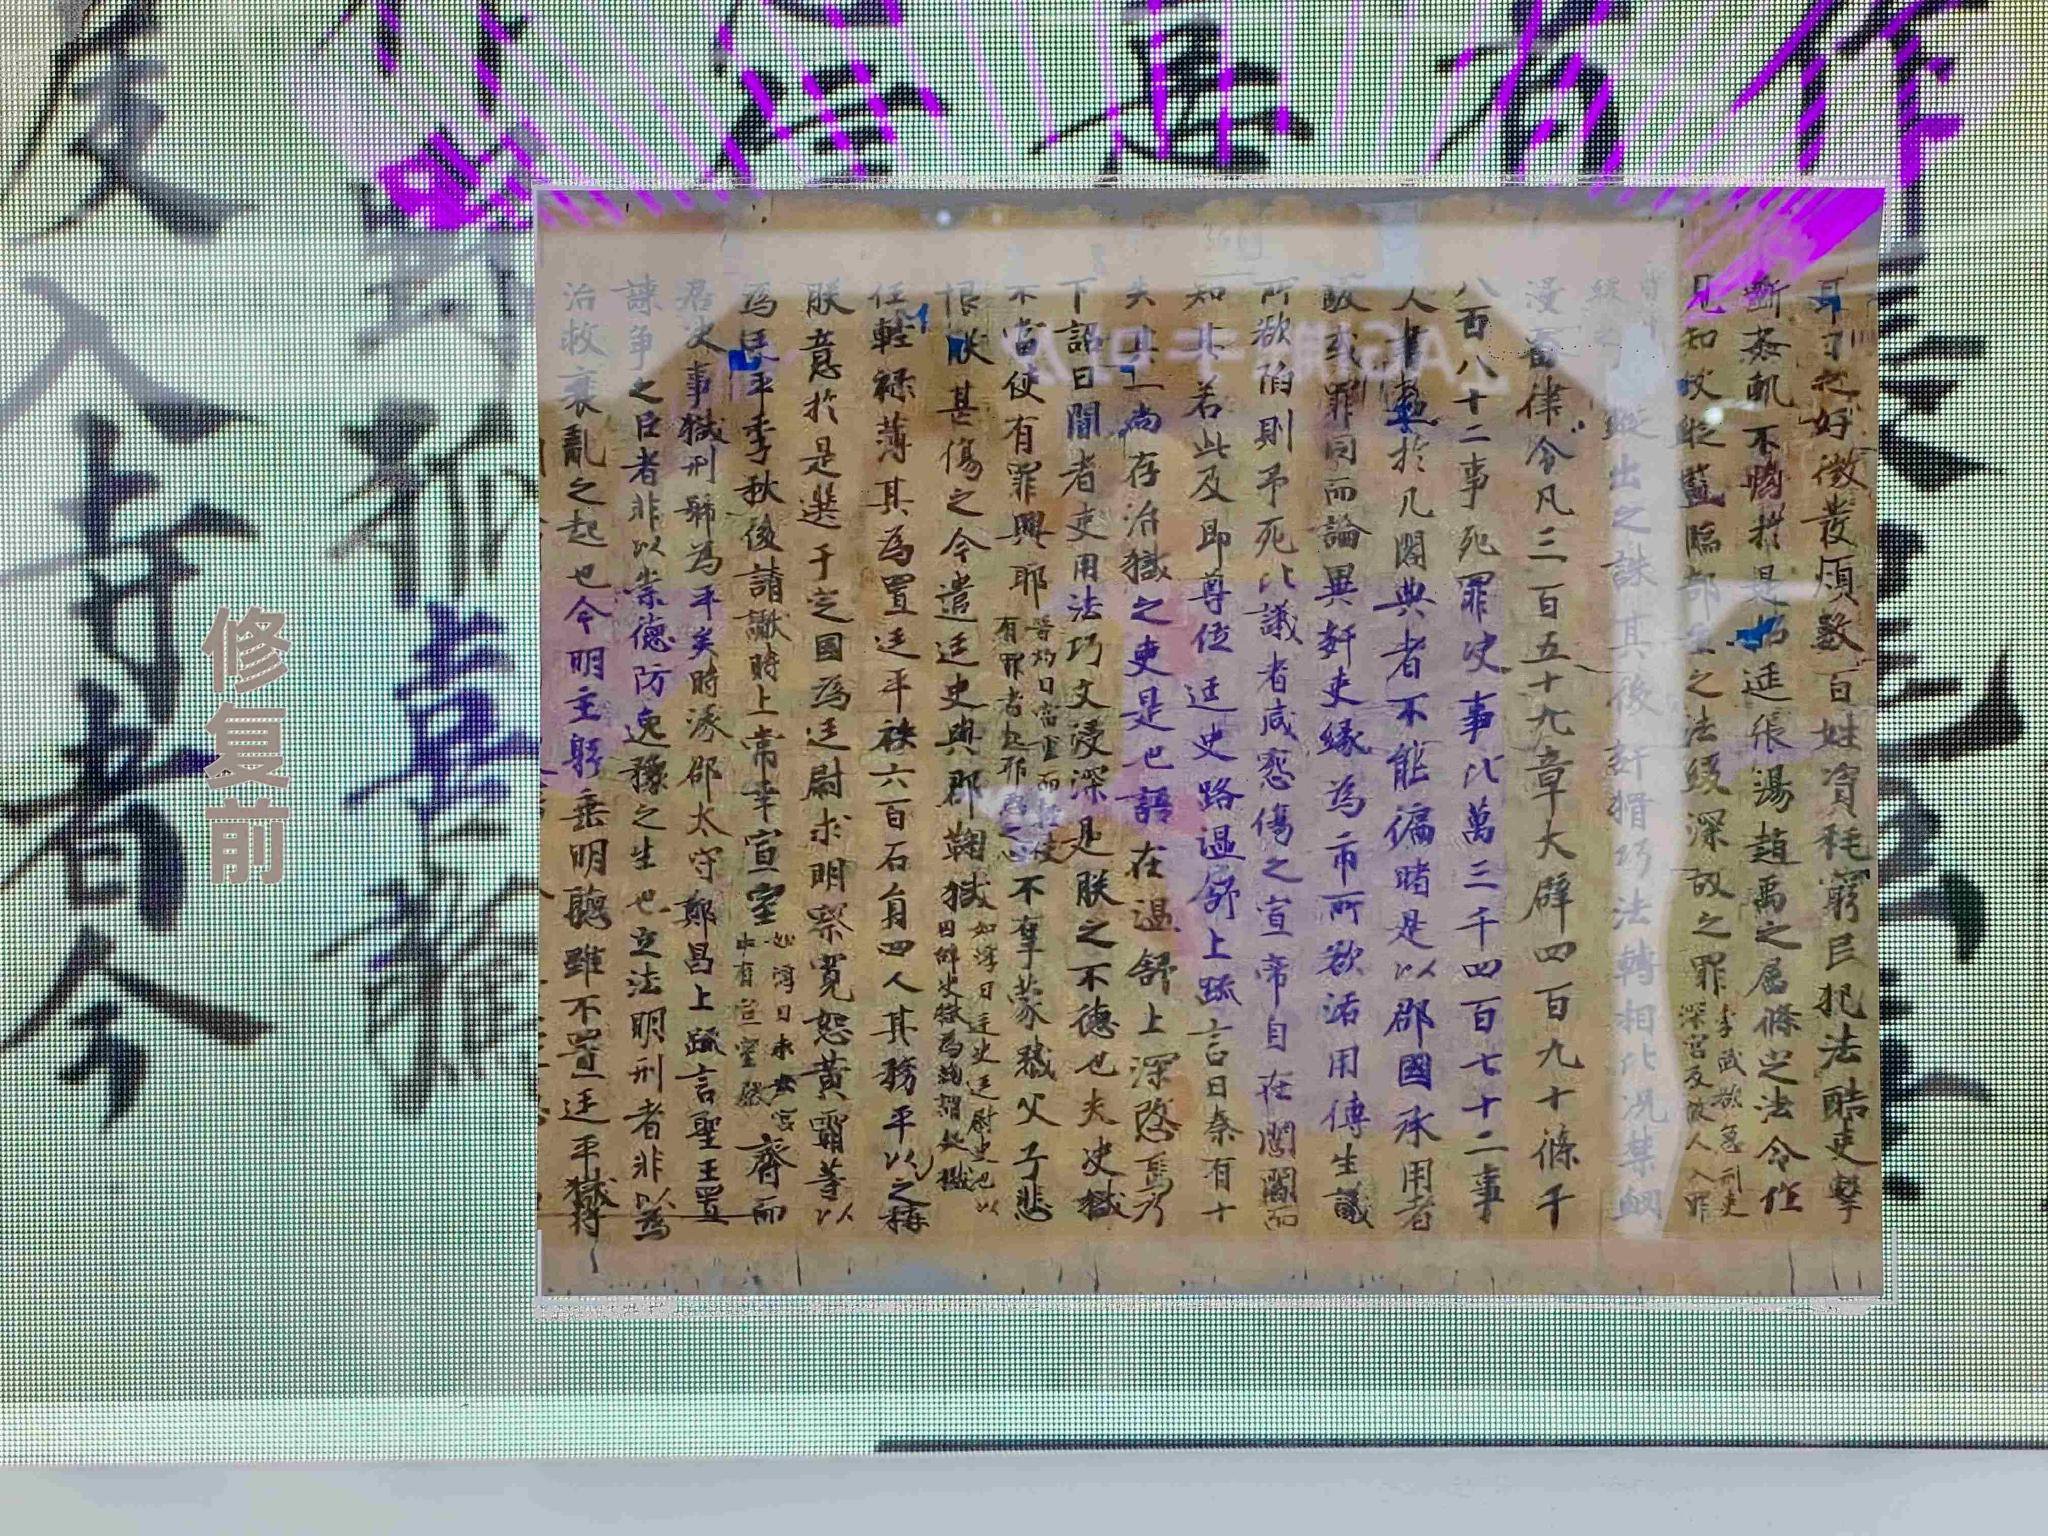 耳目之好徵發煩數百姓貧耗窮巨犯法酷吏擊
斷姦軌不勝於是招進張湯趙禹之屬條定法令作
見知故縱監臨部主之法緩深故之罪李武欲急刑吏深害及故人入罪
縱出之誅其後姧猾巧法轉相比况禁網
浸密律令凡三百五十九章大辟四百九十條千
八百八十二事死罪决事比萬三千四百七十二事
文書盈於几閣典者不能徧睹是以郡國承用者
駮或罪同而論異姧吏緣為市所欲活用傅生議
所欲陷則予死比議者咸寃傷之宣帝自在閭閻而
知其若此及即尊位廷史路温舒上疏言曰秦有十
失其一尚存治獄之吏是也語在温舒上深愍焉乃
下詔曰間者吏用法巧文浸深是朕之不德也夫决獄
不當使有罪興邪晉灼曰當重而輕使有罪者起邪惡心不辜蒙戮父子悲
恨朕甚傷之今遣廷史與郡鞠獄如淳曰廷史廷尉史也以囚辭决獄為鞠謂疑獄
任輕祿薄其為置廷平秩六百石員四人其務平以之稱
朕意於是選于定國為廷尉求明察寬恕黃霸等以
為廷平季秋後請讞時上常幸宣室如淳曰未央宮中有宣室殿齋而
居决事獄刑號為平矣時涿郡太守鄭昌上疏言聖王置
諫爭之臣者非以崇德防逸豫之生也立法明刑者非以為
治救衰亂之起也今明主躬垂明聽雖不置廷平獄將
入寺者今
修复前